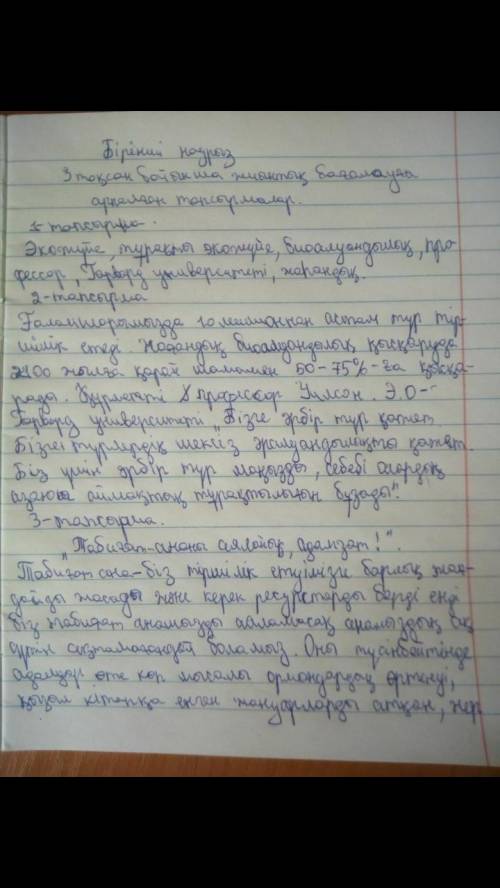 Бірінші наурыз
3 тоқсан бойынша жиынтық бағалауға
арналған тапсырмалар.
1-тапсырма.
Экожүйе, тұрақты экожүйе, биоалуандылық, про-
фессор, Гарвард университеті, жаһандық.
2-тапсырма
Ғаламшарымызда 10 миллионнан астам түр тір-
шілік етед. Жаһандық биоалуандылық қысқаруда
2100 жылға қарай шамамен 50-75%-ға қысқа-
рады. Құрметті профессор Уилсон. Э.О-
Гарвард университеті "Бізге әрбір түр қажет
Бізге түрлердің шексіз әралуандылықты қажет.
Біз үшін әрбір түр маңызды, себебі олардың
азаюы аймақтың тұрақтылығын бұзады".
3-тапсырма.
"Табиғат-ананы аялайық, адамзат!".
Табиғат ана-біз тіршілік етуімізге барлық жағ-
дайды жасады және керек ресурстарды берді енді
біз табиғат анамызды аяламасақ анамыздың
сүтін ақтамағандай боламыз. Оны түсінбейтінде
адамдар өте көп мысалы ормандардың өртенуі,
қызыл кітапқа енген жануарларды атқан, жер